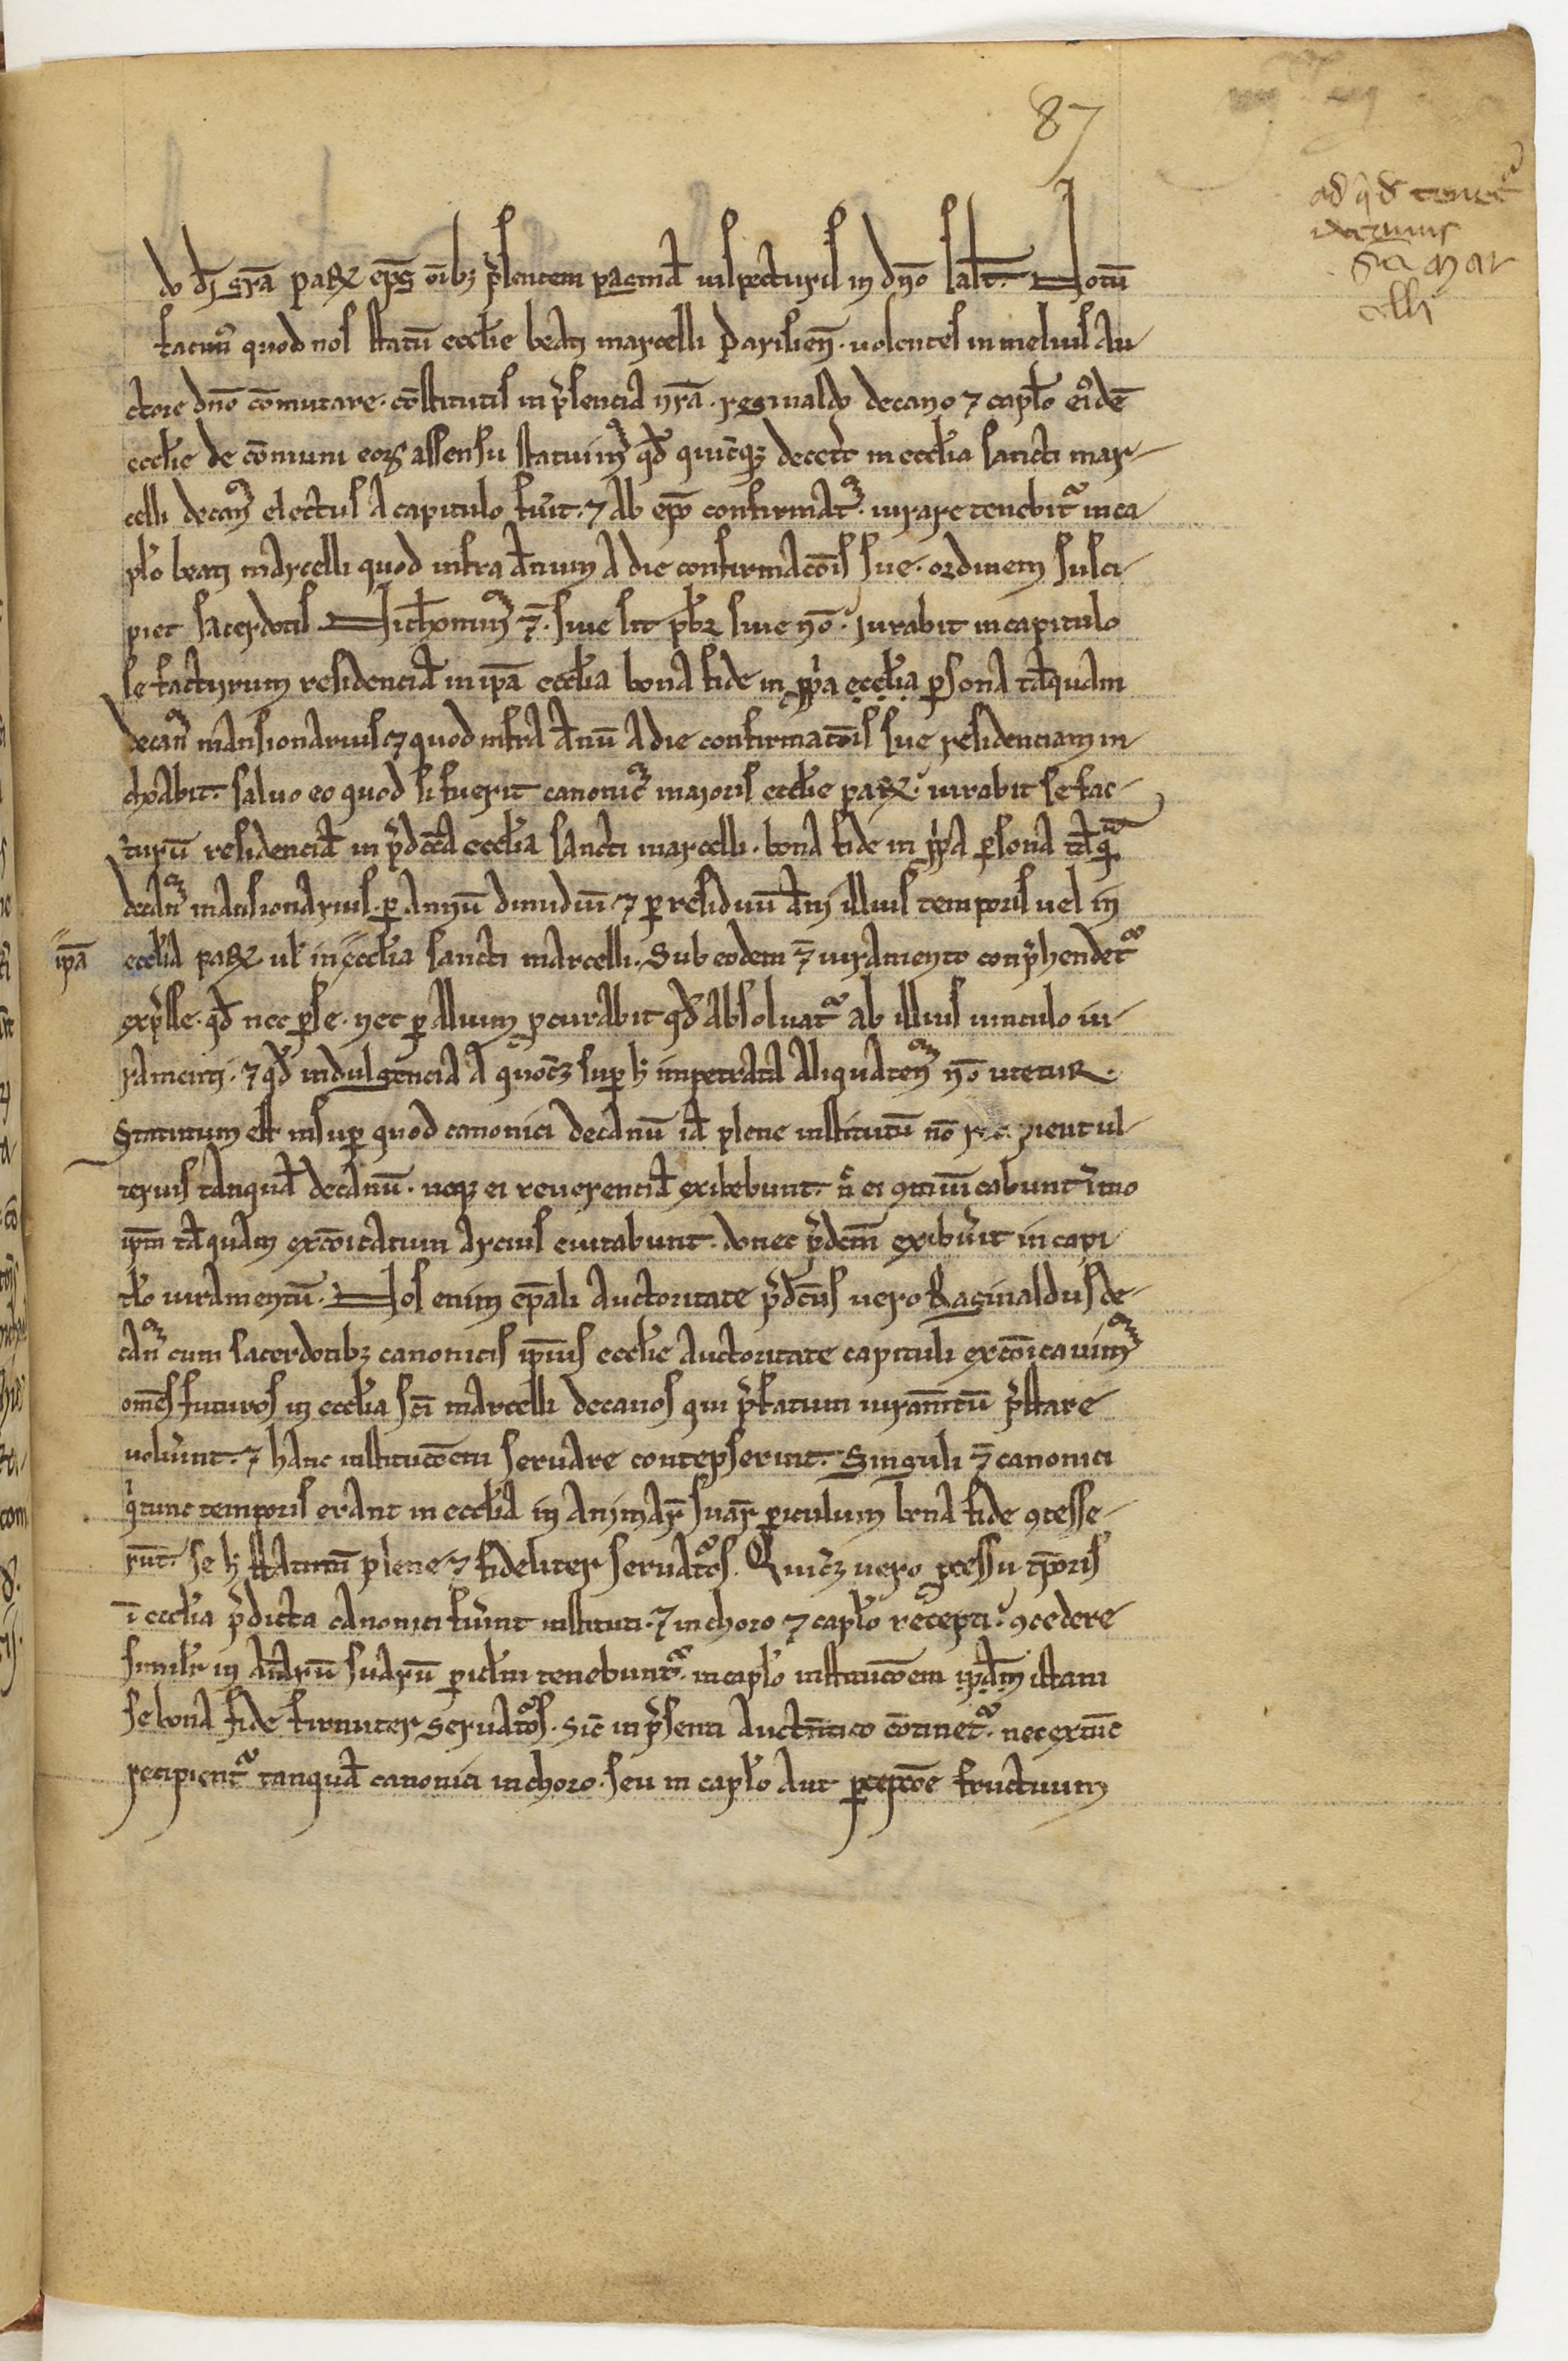 87
ad qd tenet᷑
decanus
sci Mar
celli
do dī grā parꝝ ep̄s oībꝫ p̄sentem paginā inspecturis in dn̄o salt̄. Notū
facim᷒ quod nos statū eccl̄ie beati marcelli parisien̄. uolentes in melius au-
ctore dn̄o cōmutare. cōstitutis in p̄sencia nr̄a. reginaldo decano ⁊ capl̄o ei᷒dē
eccl̄ie de cōmuni eoꝝ assensu statuim᷒ qd̄ quicūqꝫ decet̄o in eccl̄ia sancti mar-
celli decan᷒ electus a capitulo fu̾it. ⁊ ab ep̄o confirmat᷒. iurare tenebit᷑ in ca
pl̄o beati marcelli quod infra annum a die confirmac̄ois sue. ordinem susci-
piet sacerdotis. Nichomin᷒ ⁊̄. siue sit pb̄r siue nō. iurabit in capitulo
se facturum residenciā in ip̄a eccl̄ia bona fide in ꝓp̄a eccl̄ia ꝑsona tāquam
decan᷒ mansionarius. ⁊ quod infra annū a die confirmatōis sue residenciam in-
choabit. saluo eo quod si fuerit canonic᷒ majoris eccl̄ie parꝝ. iurabit se fac-
turū residenciā in p̄dc̄a eccl̄ia sancti marcelli. bona fide in ꝓp̄a ꝑsona tāq̄
decan᷒ mansionarius. ꝑ annū dimidiū. ⁊ ꝑ residuū anni illius temporis uel in
ip̄a
eccl̄ia parꝝ. ul̄ in eccl̄ia sancti marcelli. Sub eodem ⁊̄ iuramento conp̄hendet᷑
exp̄sse. qd̄ nec ꝑ se. nec ꝑ alium ꝓcurabit qd̄ absoluat᷑ ab illius uinculo iu-
ramenti. ⁊ qd̄ indulgencia a quocūqꝫ suꝑ h̄ impetrata aliquaten᷒ nō utetur.
Statutum est insuꝑ quod canonici decanū iā plene institutū nō recipient ul-
terius tanquā decanū. neqꝫ ei reuerenciā exibebunt. n̄ ei ꝯmūicabunt. īmo
ip̄m tāquam exc̄oicatum arcius euitabunt. donec p̄dc̄m exibu̾it in capi
tl̄o iuramentū. Nos enim ep̄ali auctoritate p̄dc̄us uero Raginaldus de-
can᷒ cum sacerdotibꝫ canonicis ip̄ius eccl̄ie auctoritate capituli exc̄oicauim᷒
om̄es futuros in eccl̄ia sc̄i marcelli decanos qui p̄fatum iuram̄tū p̄stare
nolu̾int. ⁊ hanc institucōem seruare contepserint. Singuli ⁊̄ canonici
q̄ tunc temporis erant in eccl̄ia in animar̄ suar̄ ꝑiculum bona fide ꝯcesse-
rūt. se h̄ statutū plene ⁊ fideliter seruatos. Quicūqꝫ uero ꝓcessu tꝑoris
ī eccl̄ia p̄dicta canonici fu̾int instituti. ⁊ in choro ⁊ capl̄o recepti. ꝯcedere
simil̄r in aīarū suarū ꝑicl̄m tenebunt᷑. in capl̄o institucōem ip̄am istam
se bona fide firmiter seruatos. sic̄ in p̄senti auctentico cōtinet᷑. nec ex tūc
recipient᷑ tanquā canonici in choro. seu in capl̄o aut ꝑcepcōe fructuum